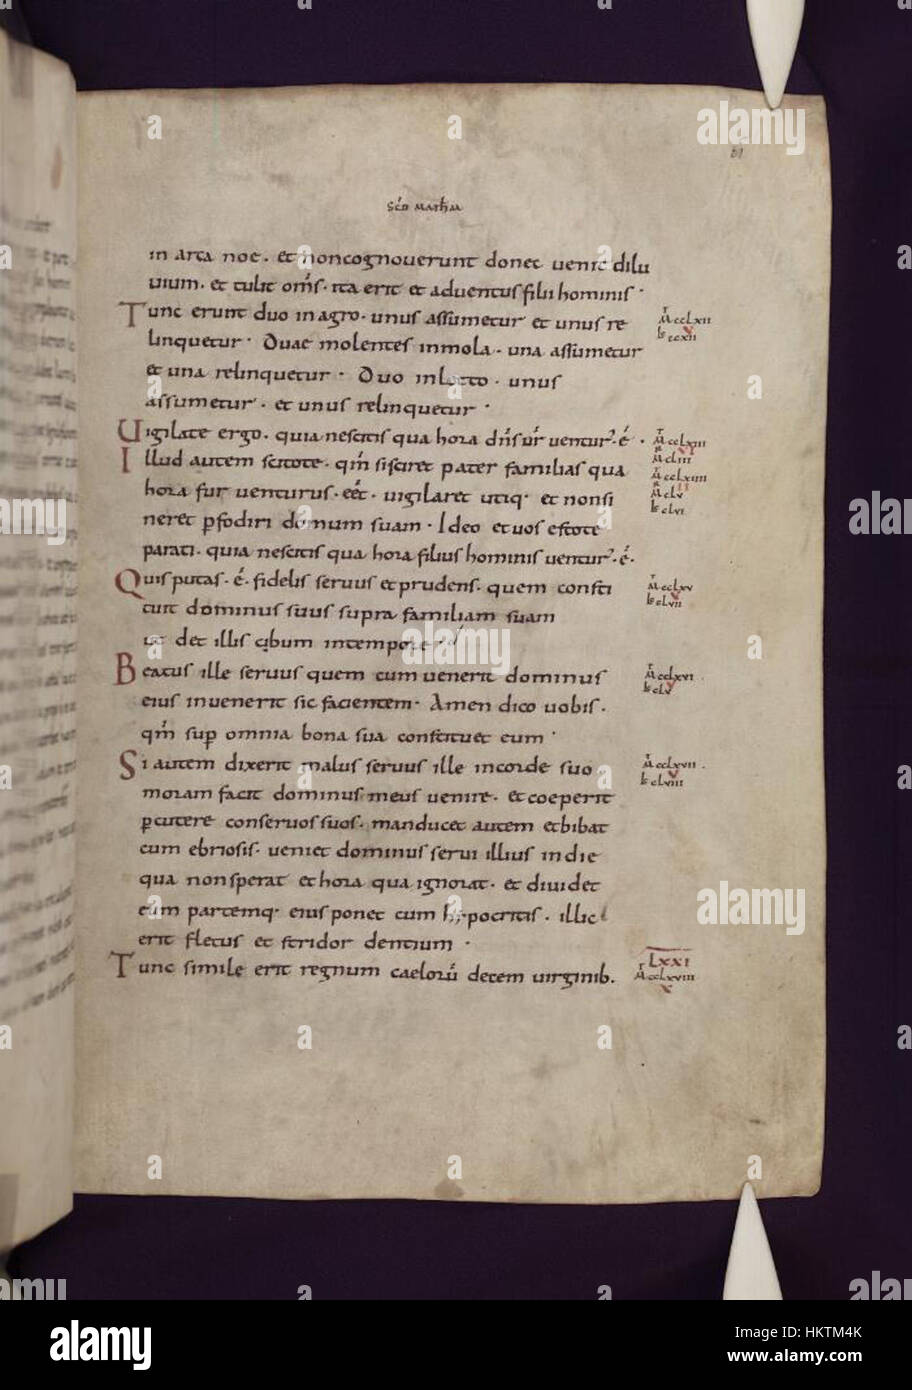 scd math̅m
in arca noe · et non cognoverunt donec venit dilu
vium · et tulit om̅s · ita erit et adventus filii hominis ·
Tunc erunt duo in agro · unus assumetur et unus re
linquetur · Duae molentes in mola · una assumetur
et una relinquetur · Duo in lecto · unus
assumetur · et unus relinquetur ·
Uigilate ergo · quia nescitis qua hora dn̅s vr̅ venturˀ · e̅ ·
Illud autem scitote · qm̅ si sciret pater familias qua
hora fur venturus · eēt · vigilaret utiq· et non si
neret ꝑfodiri domum suam · Ideo et vos estote
parati · quia nescitis qua hora filius hominis venturˀ · e̅ ·
Quis putas · e̅ · fidelis servus et prudens · quem consti
tuit dominus suus supra familiam suam
ut det illis cibum in tempore ·
Beatus ille servus quem cum venerit dominus
eius invenerit sic facientem · Amen dico vobis ·
qm̅ sup̅ omnia bona sua constituet eum ·
Si autem dixerit malus servus ille in corde suo
moram facit dominus meus venire · et coeperit
ꝑcutere conservos suos · manducet autem et bibat
cum ebriosis · veniet dominus servi illius in die
qua non sperat et hora qua ignorat · et dividet
eum partemq· eius ponet cum hypocritis · illic
erit fletus et stridor dentium ·
Tunc simile erit regnum caeloru̅ decem virginib·
M cclxii
M cclxiii
M cliii
M cclxiiii
M clv
L clvi
M cclxv
L clvii
M cclxvi
L clv
M cclxvii
L clviii
LXXI
M cclxviii
alamy
Image ID: HKTM4K
www.alamy.com